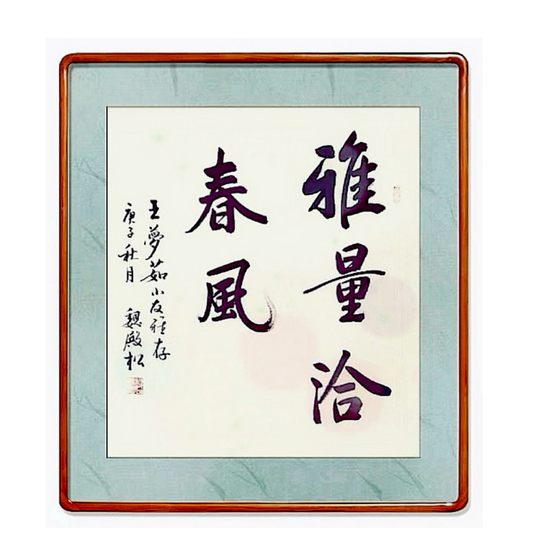 雅量洽
春風
王夢茹小友雅存
庚子秋月 魏殿松